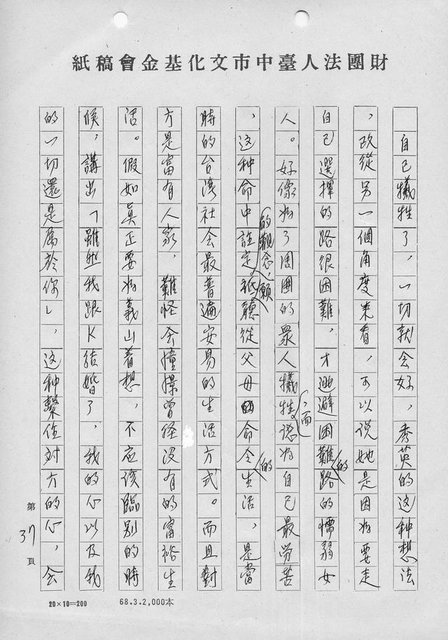 財團法人臺中市文化基金會稿紙
自己犧牲了，一切就会好，秀英的这种想法
，改從另一個角度來看，可以說她是因为要走
自己選擇的路很困難，才逃避困難路的的懦弱女
人。好像为了周圍的眾人犧牲，而認为自己最勞苦
，这种命中註定的觀念，願聽從父母的命令的生活，是當
時的台湾社会最普遍安易的生活方式。而且對
方是富有人家，難怪会憧憬曾经没有的富裕生
活。假如真正要为義山着想，不应该臨別的時
候，講出「雖然我跟K結婚了，我的心以及我
的一切還是屬於你」，这种繫住對方的心，会
第37頁
20×10=200
68.3.2,000本